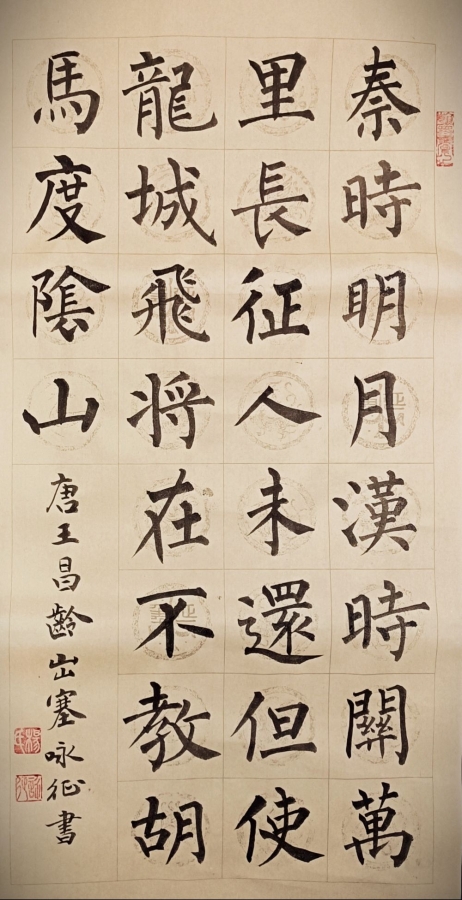 秦時明月漢時關萬
里長征人未還但使
龍城飛将在不教胡
馬度陰山
唐王昌齡出塞咏征書